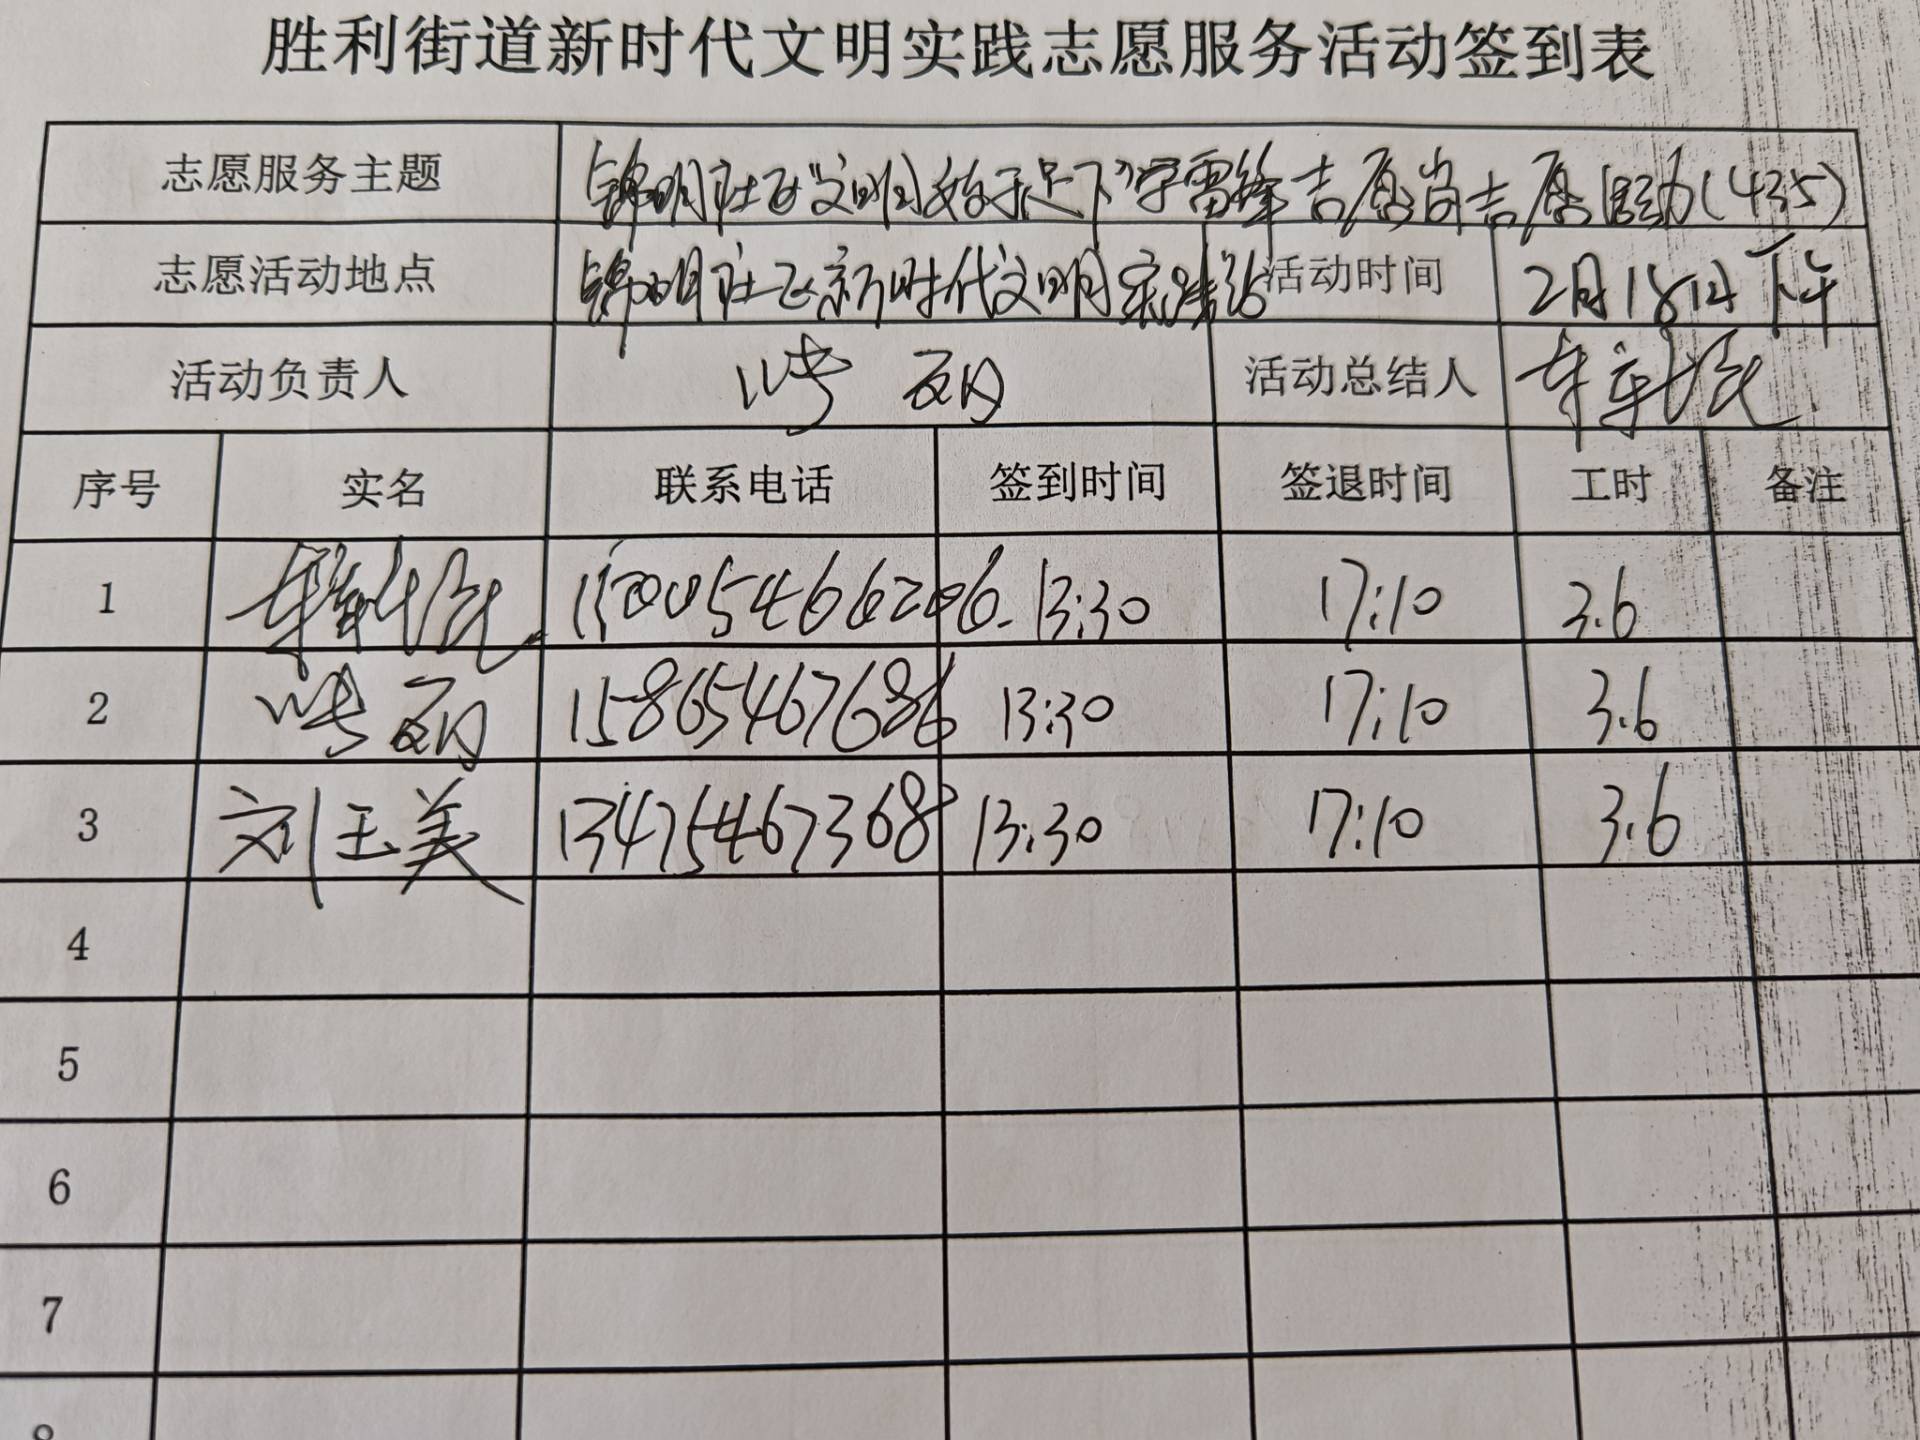 胜利街道新时代文明实践志愿服务活动签到表
志愿服务主题 锦明社区"文明因始于足下"学雷锋志愿尚志愿活动(435)
志愿活动地点 锦明社区新时代文明实践站 活动时间 2月18日下午
活动负责人 丽 活动总结人
序号 实名 联系电话 签到时间 签退时间 工时 备注
1 13:30 17:10 3.6
2 丽 15865467686 13:30 17:10 3.6
3 刘玉美 13475467368 13:30 17:10 3.6
4
5
6
7
8